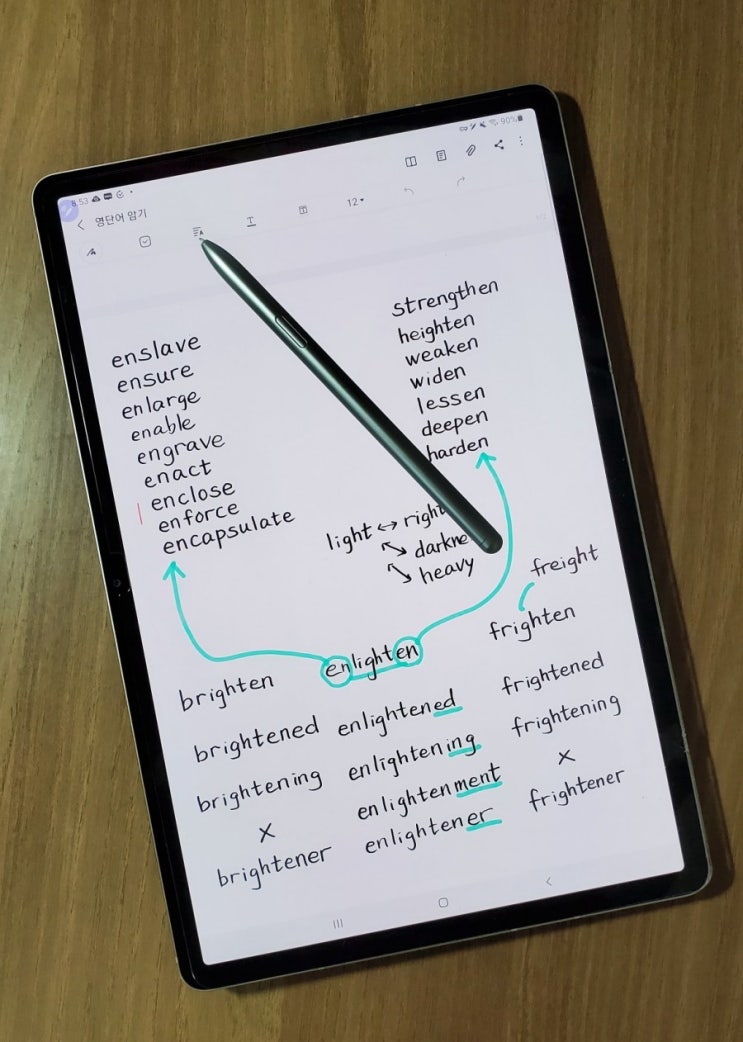 8:53
90%
영단어 암기
12
enslave
ensure
enlarge
enable
engrave
enact
enclose
enforce
encapsulate
strengthen
heighten
weaken
widen
lessen
deepen
harden
light ↔ right
darkne
heavy
freight
frighten
enlighten
brighten
brightened enlightened frightened
brightening enlightening frightening
x enlightenment x
brightener enlightener frightener